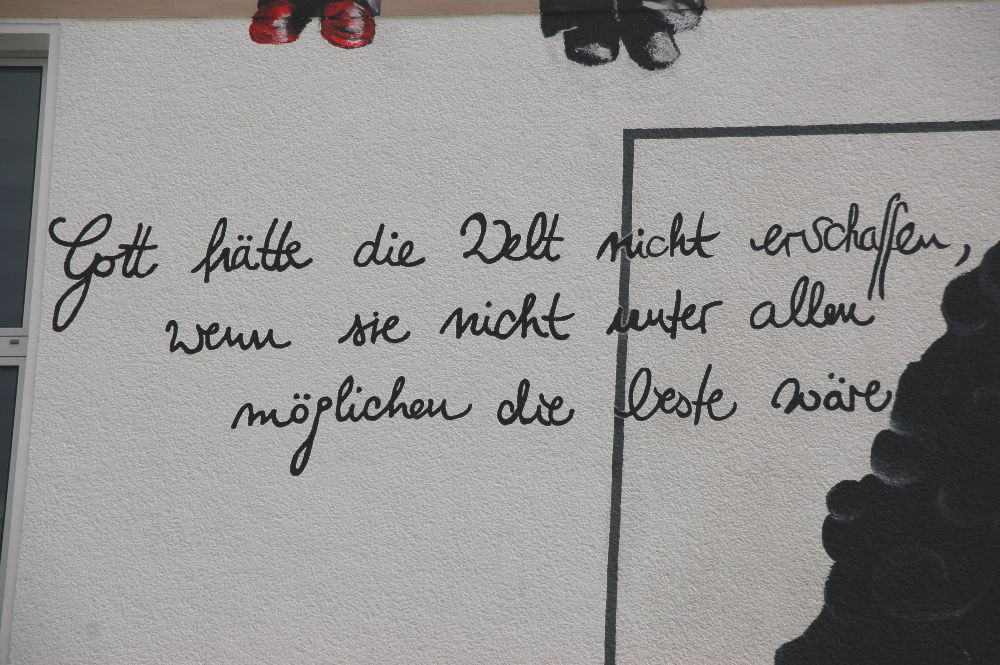 Gott hätte die Welt nicht erschaffen,
wenn sie nicht unter allen
möglichen die beste wäre